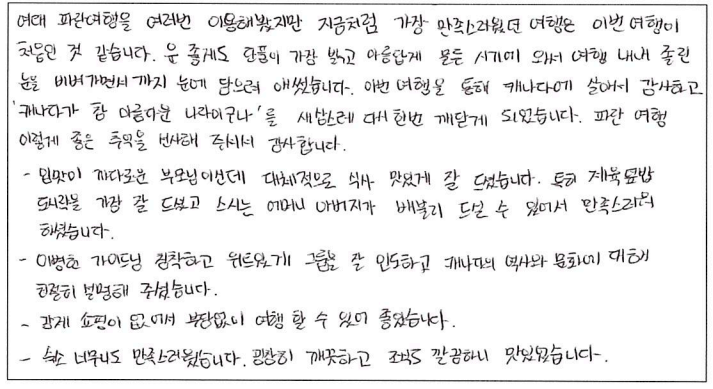 여태 파란여행을 여러번 이용해봤지만 지금처럼 가장 만족스러웠던 여행은 이번 여행이
처음인 것 같습니다. 운 좋게도 단풍이 가장 밝고 아름답게 물든 시기에 와서 여행 내내 졸린
눈을 비벼가면서까지 눈에 담으려 애썼습니다. 이번 여행을 통해 캐나다에 살아서 감사하고
'캐나다가 참 아름다운 나라이구나'를 새삼스레 다시한번 깨닫게 되었습니다. 파란 여행
이렇게 좋은 추억을 선사해 주셔서 감사합니다.
- 입맛이 까다로운 부모님이신데 대체적으로 식사 맛있게 잘 드셨습니다. 특히 제육덮밥
도시락을 가장 잘 드셨고 스시는 어머니 아버지가 배불리 드실 수 있어서 만족스러워
하셨습니다.
- 이병헌 가이드님 침착하고 위트있게 그룹을 잘 인도하고 캐나다의 역사와 문화에 대해
친절히 설명해 주셨습니다.
- 강제 쇼핑이 없어서 부담없이 여행 할 수 있어 좋았습니다.
- 숙소 너무나도 만족스러웠습니다. 굉장히 깨끗하고 조식도 깔끔하니 맛있었습니다.